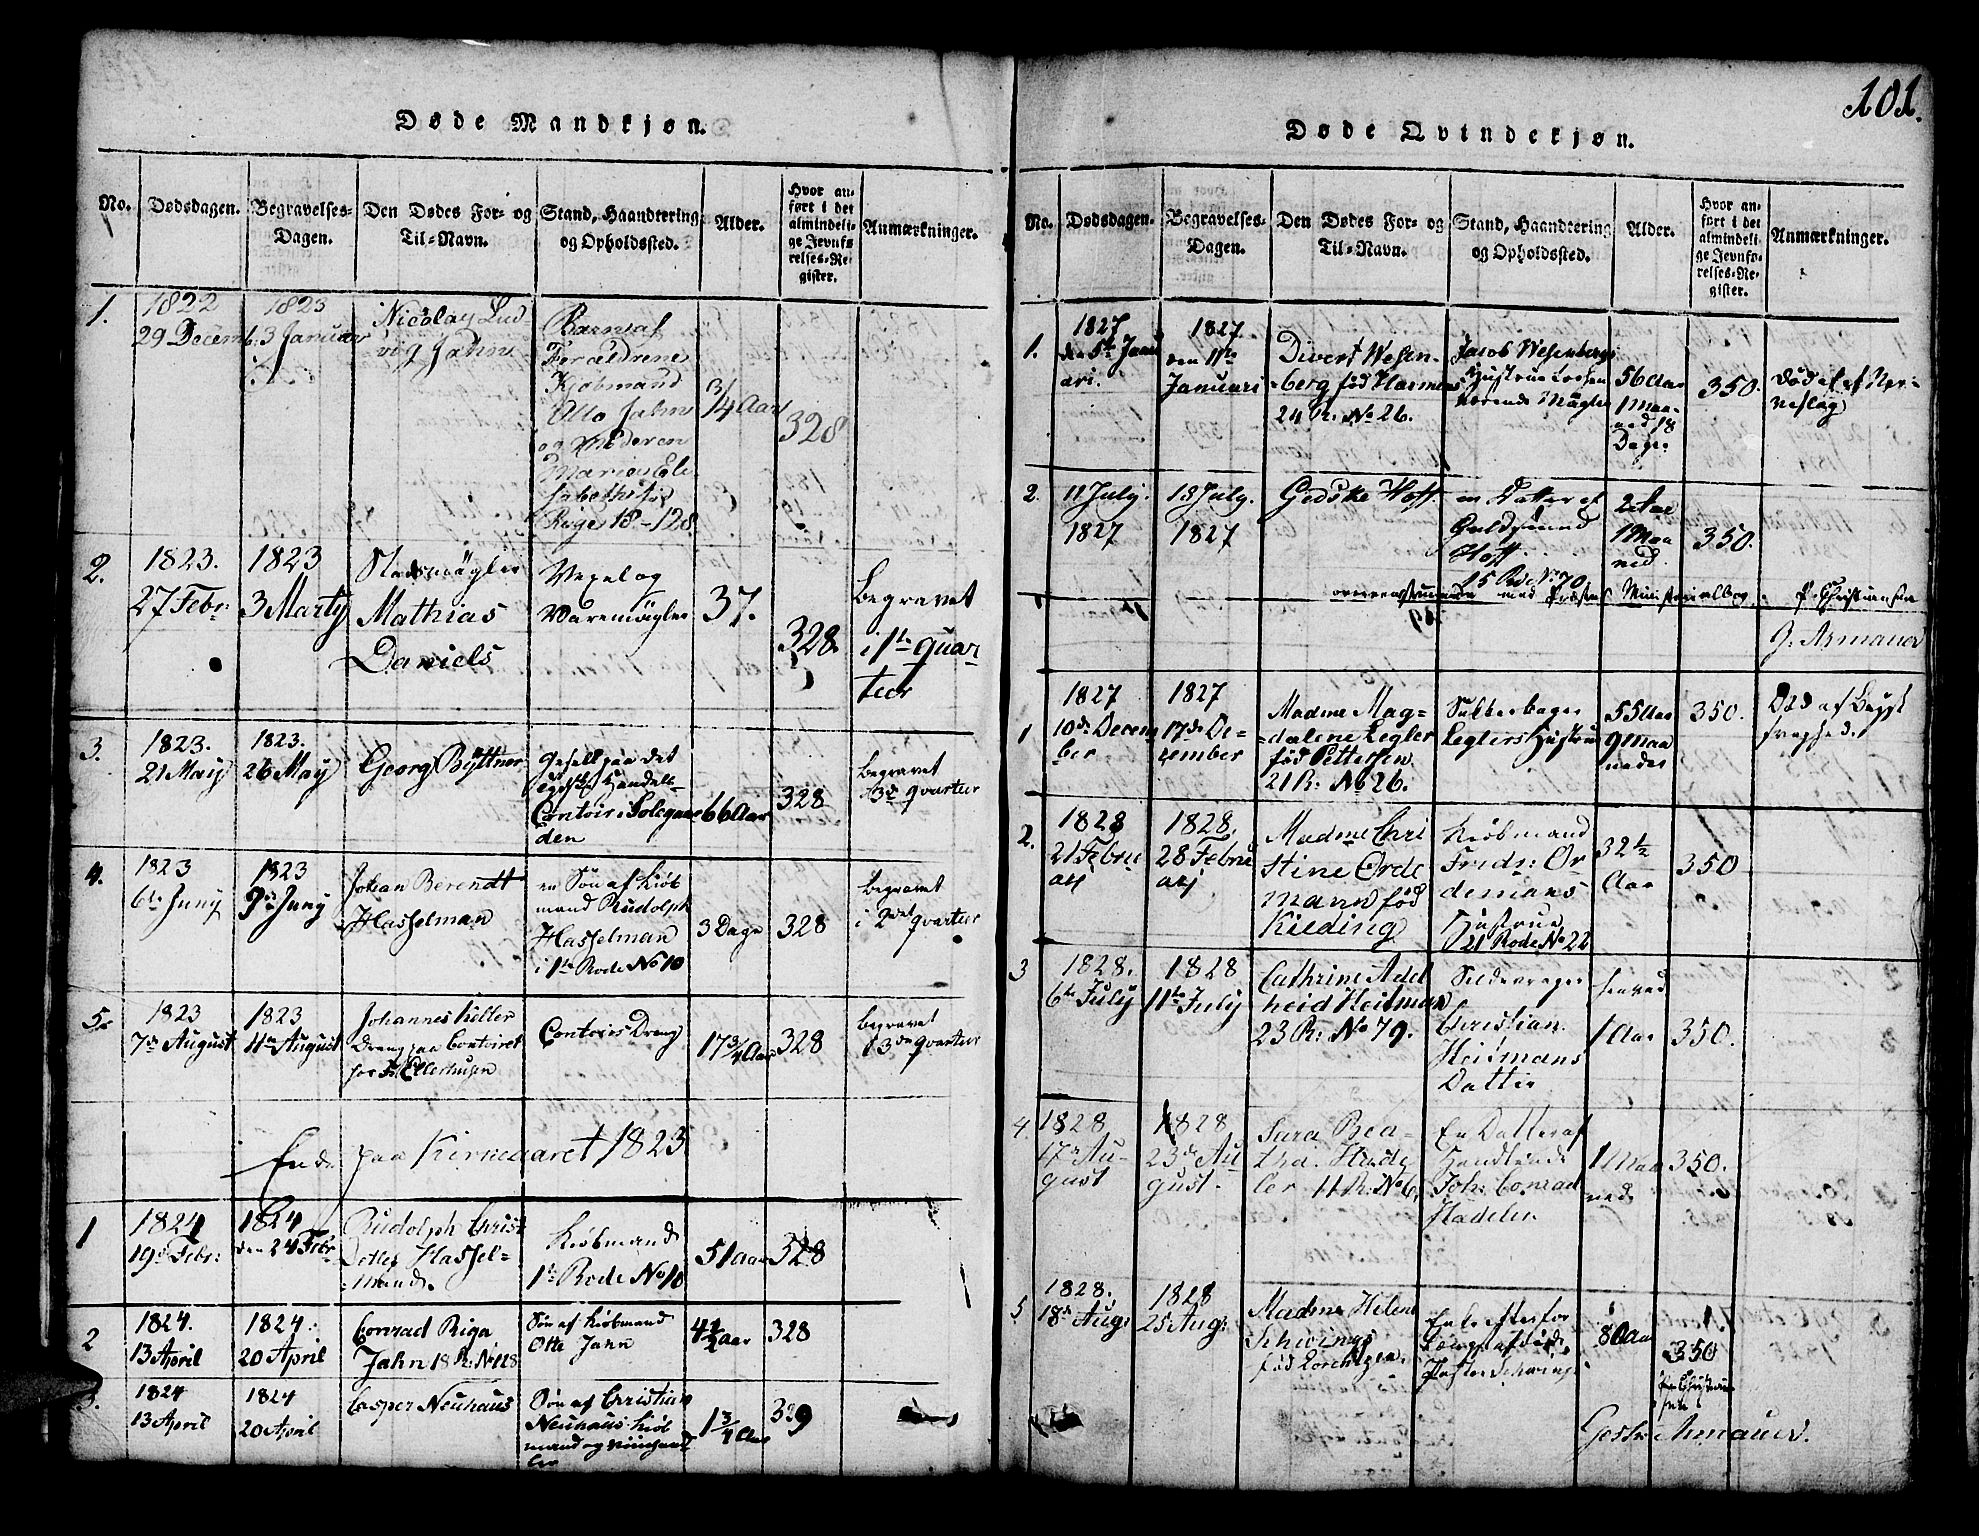 Døde Mandkjøn.
No.
Dødsdagen.
Begravelses-
Dagen.
Den Dødes For- og
Til-Navn.
Stand, Haandtering
og Opholdssted.
Alder.
Hvor an-
ført i det
almindeli-
ge Jevnfø-
relses-Re-
gister.
Anmærkninger.
1.
1822
29 Decemb.
1823
3 Januar
Nicolay Lud-
vig Jahn
Barn af
Forældrene
Kjøbmand
Otto Jahn
og Moderen
3/4 Aar
328
2.
1823.
27 Febr:
1823
3 Marty
Mathias
Daniels
Vexel og
Waremægler
37.
328.
Begravet
i 1te quar
teer
3.
1823.
21 May
1823.
26 May
Georg Büttner
Gesell paa det
Contoir i Solegaar
den
66 Aar
328
begravet
i 3de qvarteer
4.
1823
6te Juny
1823
9de Juny
Johan Berendt
Hasselman
en Søn af Kiøb
mand Rudolph
Hasselman
i 1te Rode No 10
3 Dage
328
begravet
i 2det qvarteer
5.
1823
7de August
1823
11te August
Johannes Keller
Dreng paa Contoiret
hos Fr. Ellerhusen
Contoirs Dreng
17 3/4 Aar
328
begravet
i 3de qvarteer
Ende paa Kirkeaaret 1823
1
1824
19de Febr:
1824
den 24 Febr
Rudolph Christ
Detlef Hassel=
mand.
Kiøbmand
1te Rode No 10
51 aar
328
2
1824.
13 April
1824.
20 April
Conrad Riga
Jahn 18 R: No 128
Søn af Kiøbmand
Otto Jahn
4 1/2 aar
328
3.
1824
13 April
1824
20 April
Casper Neuhaus
Søn af Christian
Neuhaus Kiøb
1 3/4 Aar
329
101.
Døde Qvindekjøn.
No.
Dødsdagen.
Begravelses-
Dagen.
Den Dødes For- og
Til-Navn.
Stand, Haandtering
og Opholdssted.
Alder.
Hvor an-
ført i det
almindeli-
ge Jevnfø-
relses-Re-
gister.
Anmærkninger.
1.
1827
den 5te Janu
ari.
1827.
den 11te
Januari
Divert Wesen-
berg fød Harmens
24 R. No 26.
Jacob Wesenbergs
Hustrue
56 Aar
1 Maa-
ned 18
Dage.
350.
Død af et Ner-
veslag
2.
11 July.
1827
18 July.
1827
Gedske Hoff
en Datter af
Guldsmed
Hoff
15 Rode No 70
2 Aar
1 Maa
ned
350.
overeensstemmende med Præstens Ministerialbog
P. Christiensen
G. Armauer
1
1827
10de Decem
ber
1827
17de De-
cember
Madme Mag=
dalene Legler
fød Pettersen
21 R: No 26.
Leglers Hustrue
55 Aar
9 Maa
neder
350.
Død af Bryst
svaghed.
2.
1828
21 Febru
arj
1828.
28 Febru
arj
Madme Chri
stine Orde
mann fød
Kielding
Kiøbmand
Fridr: Or
demans
Hustrue
21 Rode No 22
32 1/2
Aar
350
3
1828.
6te July
1828
11te July
Cathrine Adel
heid Heitman
23 R: No 79.
Christian
Heitmans
Datter
1 Aar
350.
4.
1828
17de Au-
gust
1828
23de Au
gust.
Sara Bea=
tha. Hade
ler 11 R: No 6.
En Datter af
Joh: Conrad
Hadeler
1 Maa
ned
350.
5
1828.
18de Aug:
1828
25 Aug:
Madme Helene
Schvings
fød Lorentzen.
Enke efter for
Schving
80 Aar
350
P. Christian
sen
Gerh: Armauer.